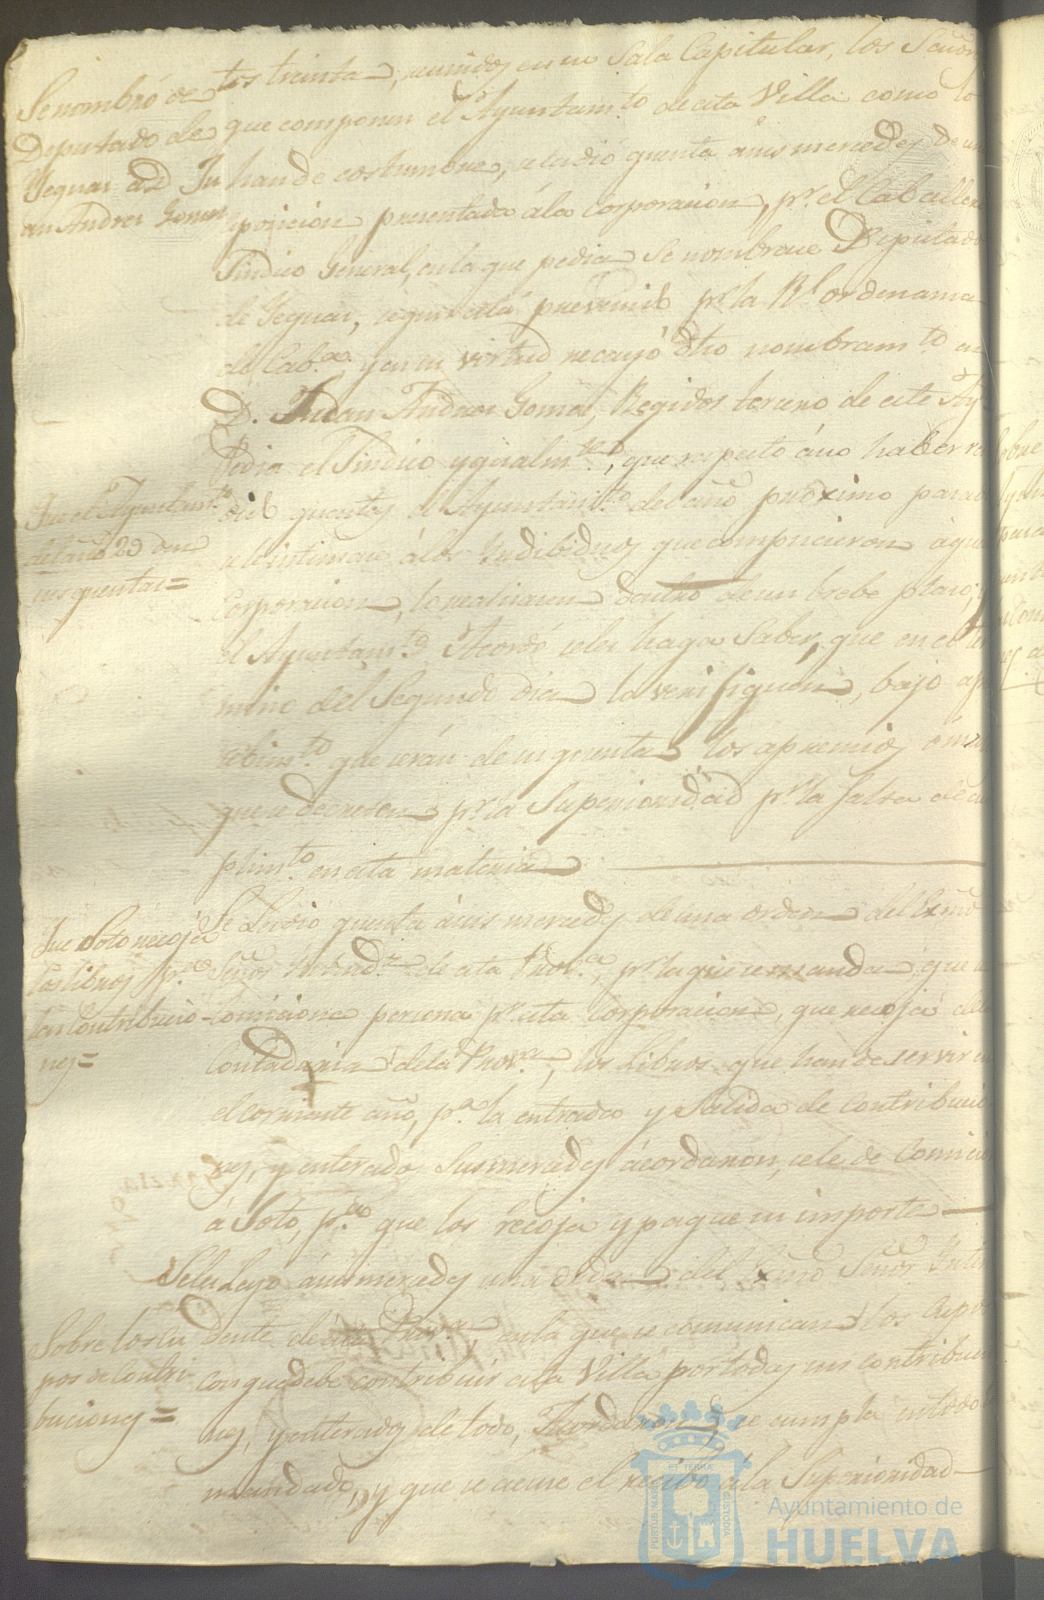 Se nombró de
Deputado de
Yeguas a D Ju
an Andres Gomez
tos treinta, reunidos en su Sala Capitular, los Señor
que componen el Ayuntam.to de esta Villa como lo
han de costumbre, se le dió quenta á sus mercedes de un
posicion presentada á la corporacion, p.r el Caballero
Sindico General, en la que pedia se nombrase Deputado
de Yeguas, segun está prevenido p.r la R.l ordenansa
de Cab.a y en su virtud recayó dho nombram.to en
D. Juan Andres Gomez, Regidor tercero de este Ay.
Pedia el Sindico ygualm.te, que respecto á no haber re
Que el Ayuntam.to
del año 29 den
sus quentas=
dido quentas el Ayuntam.to del año proximo pasado
se les intimase á los Yndibiduos que compusieron aque
corporacion, lo realisasen dentro de un brebe plaso; y
el Ayuntam.to Acordó se les haga Saber, que en el ter
mino del Segundo dia lo verifiquen, bajo ap
sebim.to que serán de su quenta los apremios ó
que se decreten p.r la Superioridad p.r la falta de cu
plim.to en esta materia
Que Soto recoja
los libros p.a
las Contribucio-
nes=
Se le dio quenta á sus mercedes de una orden del Exmo
Señor Yntend.te de esta Prov.a, p.r la que se manda que se
comicione persona p.r esta Corporacion, que recoja de la
Contaduria de la Prov.a, los libros que han de servir en
el corriente año, p.a la entrada y Salida de contribucio
nes, y enterados Sus mercedes acordaron, se le de Comicio
á Soto, p.a que los recoja y pague su importe
Se les Leyo á sus mercedes una orden del Exmo Señor Ynten
Sobre los cu
pos de Contri-
buciones=
dente de esta Prov.a en la que se comunican los Cupos
con que debe contribuir esta Villa por todas sus contribucio
nes, y enterados de todo, Acordaron, que se cumpla en todo lo
mandado, y que se acuse el recibo á la Superioridad
Ayuntamiento de
HUELVA